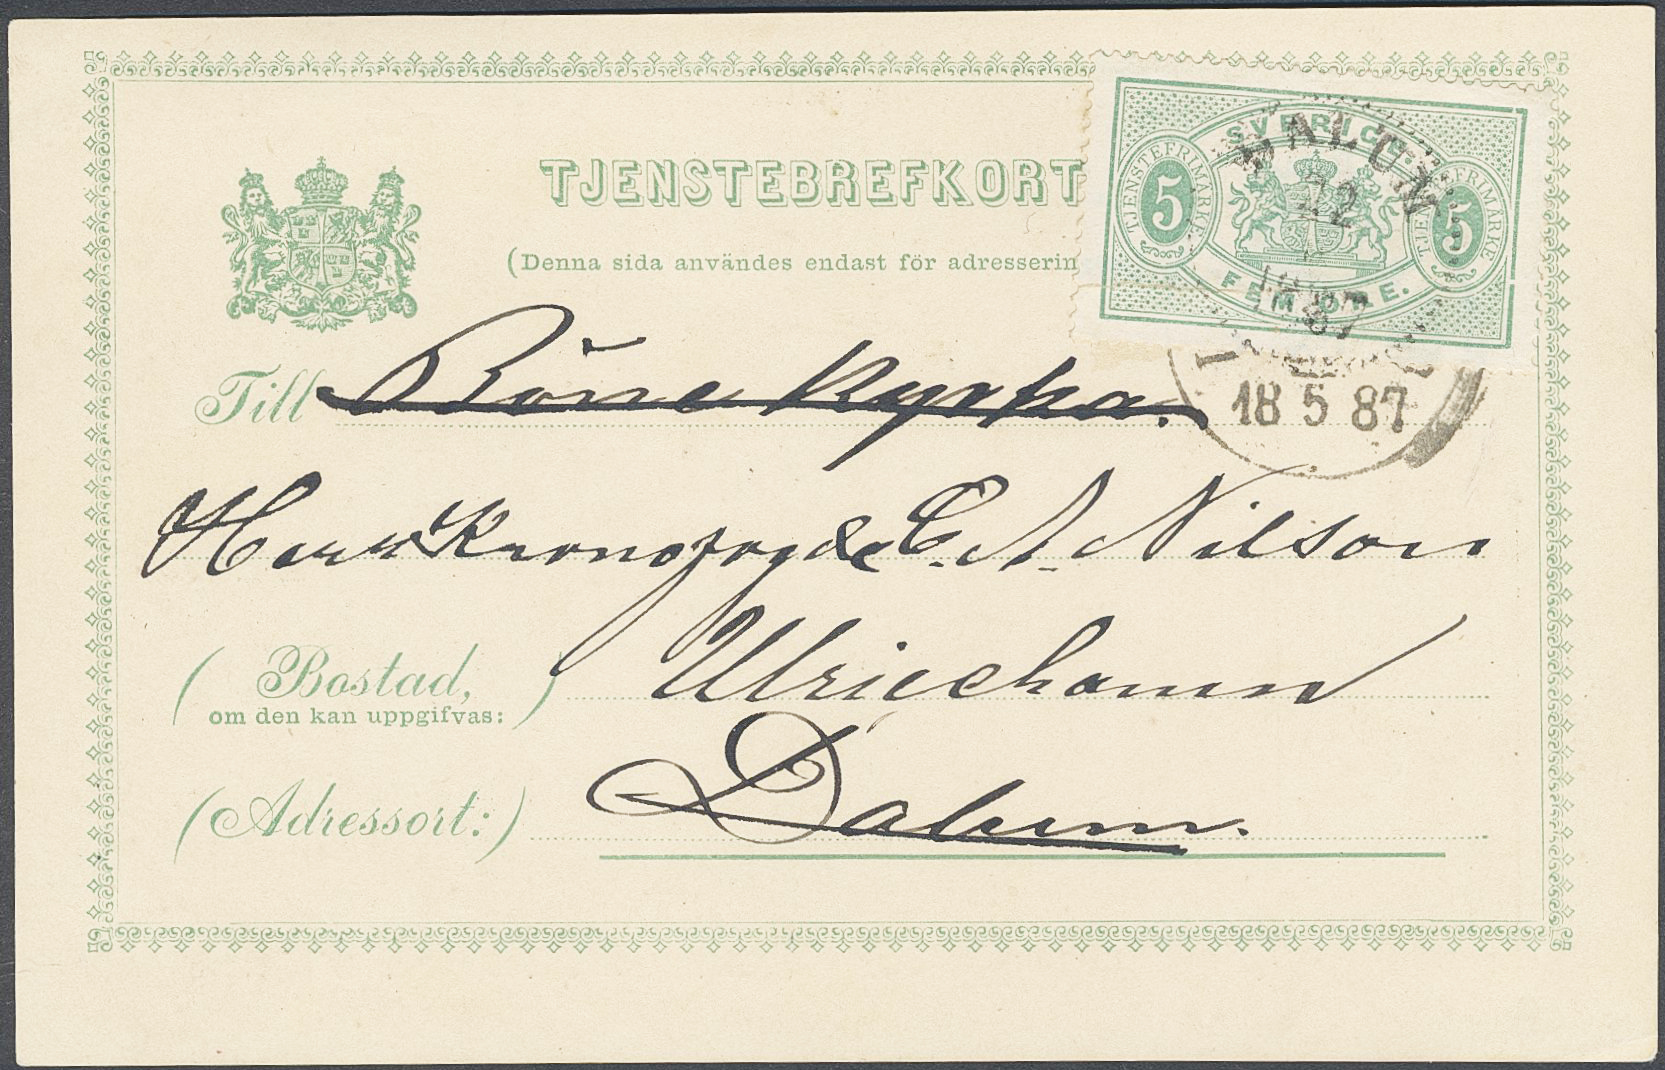 TJENSTEBREFKORT
(Denna sida användes endast för adresserin
SVERIGE
TJENSTEFRIMÄRKE
5
5
TJENSTEFRIMÄRKE
FEM ÖRE.
22
1887
18 5 87
Till Böne Kyrka.
Herr Kronofogde C. A. Nilson
(Bostad,
om den kan uppgifvas:) Ulricehamn
(Adressort:) Dalum.